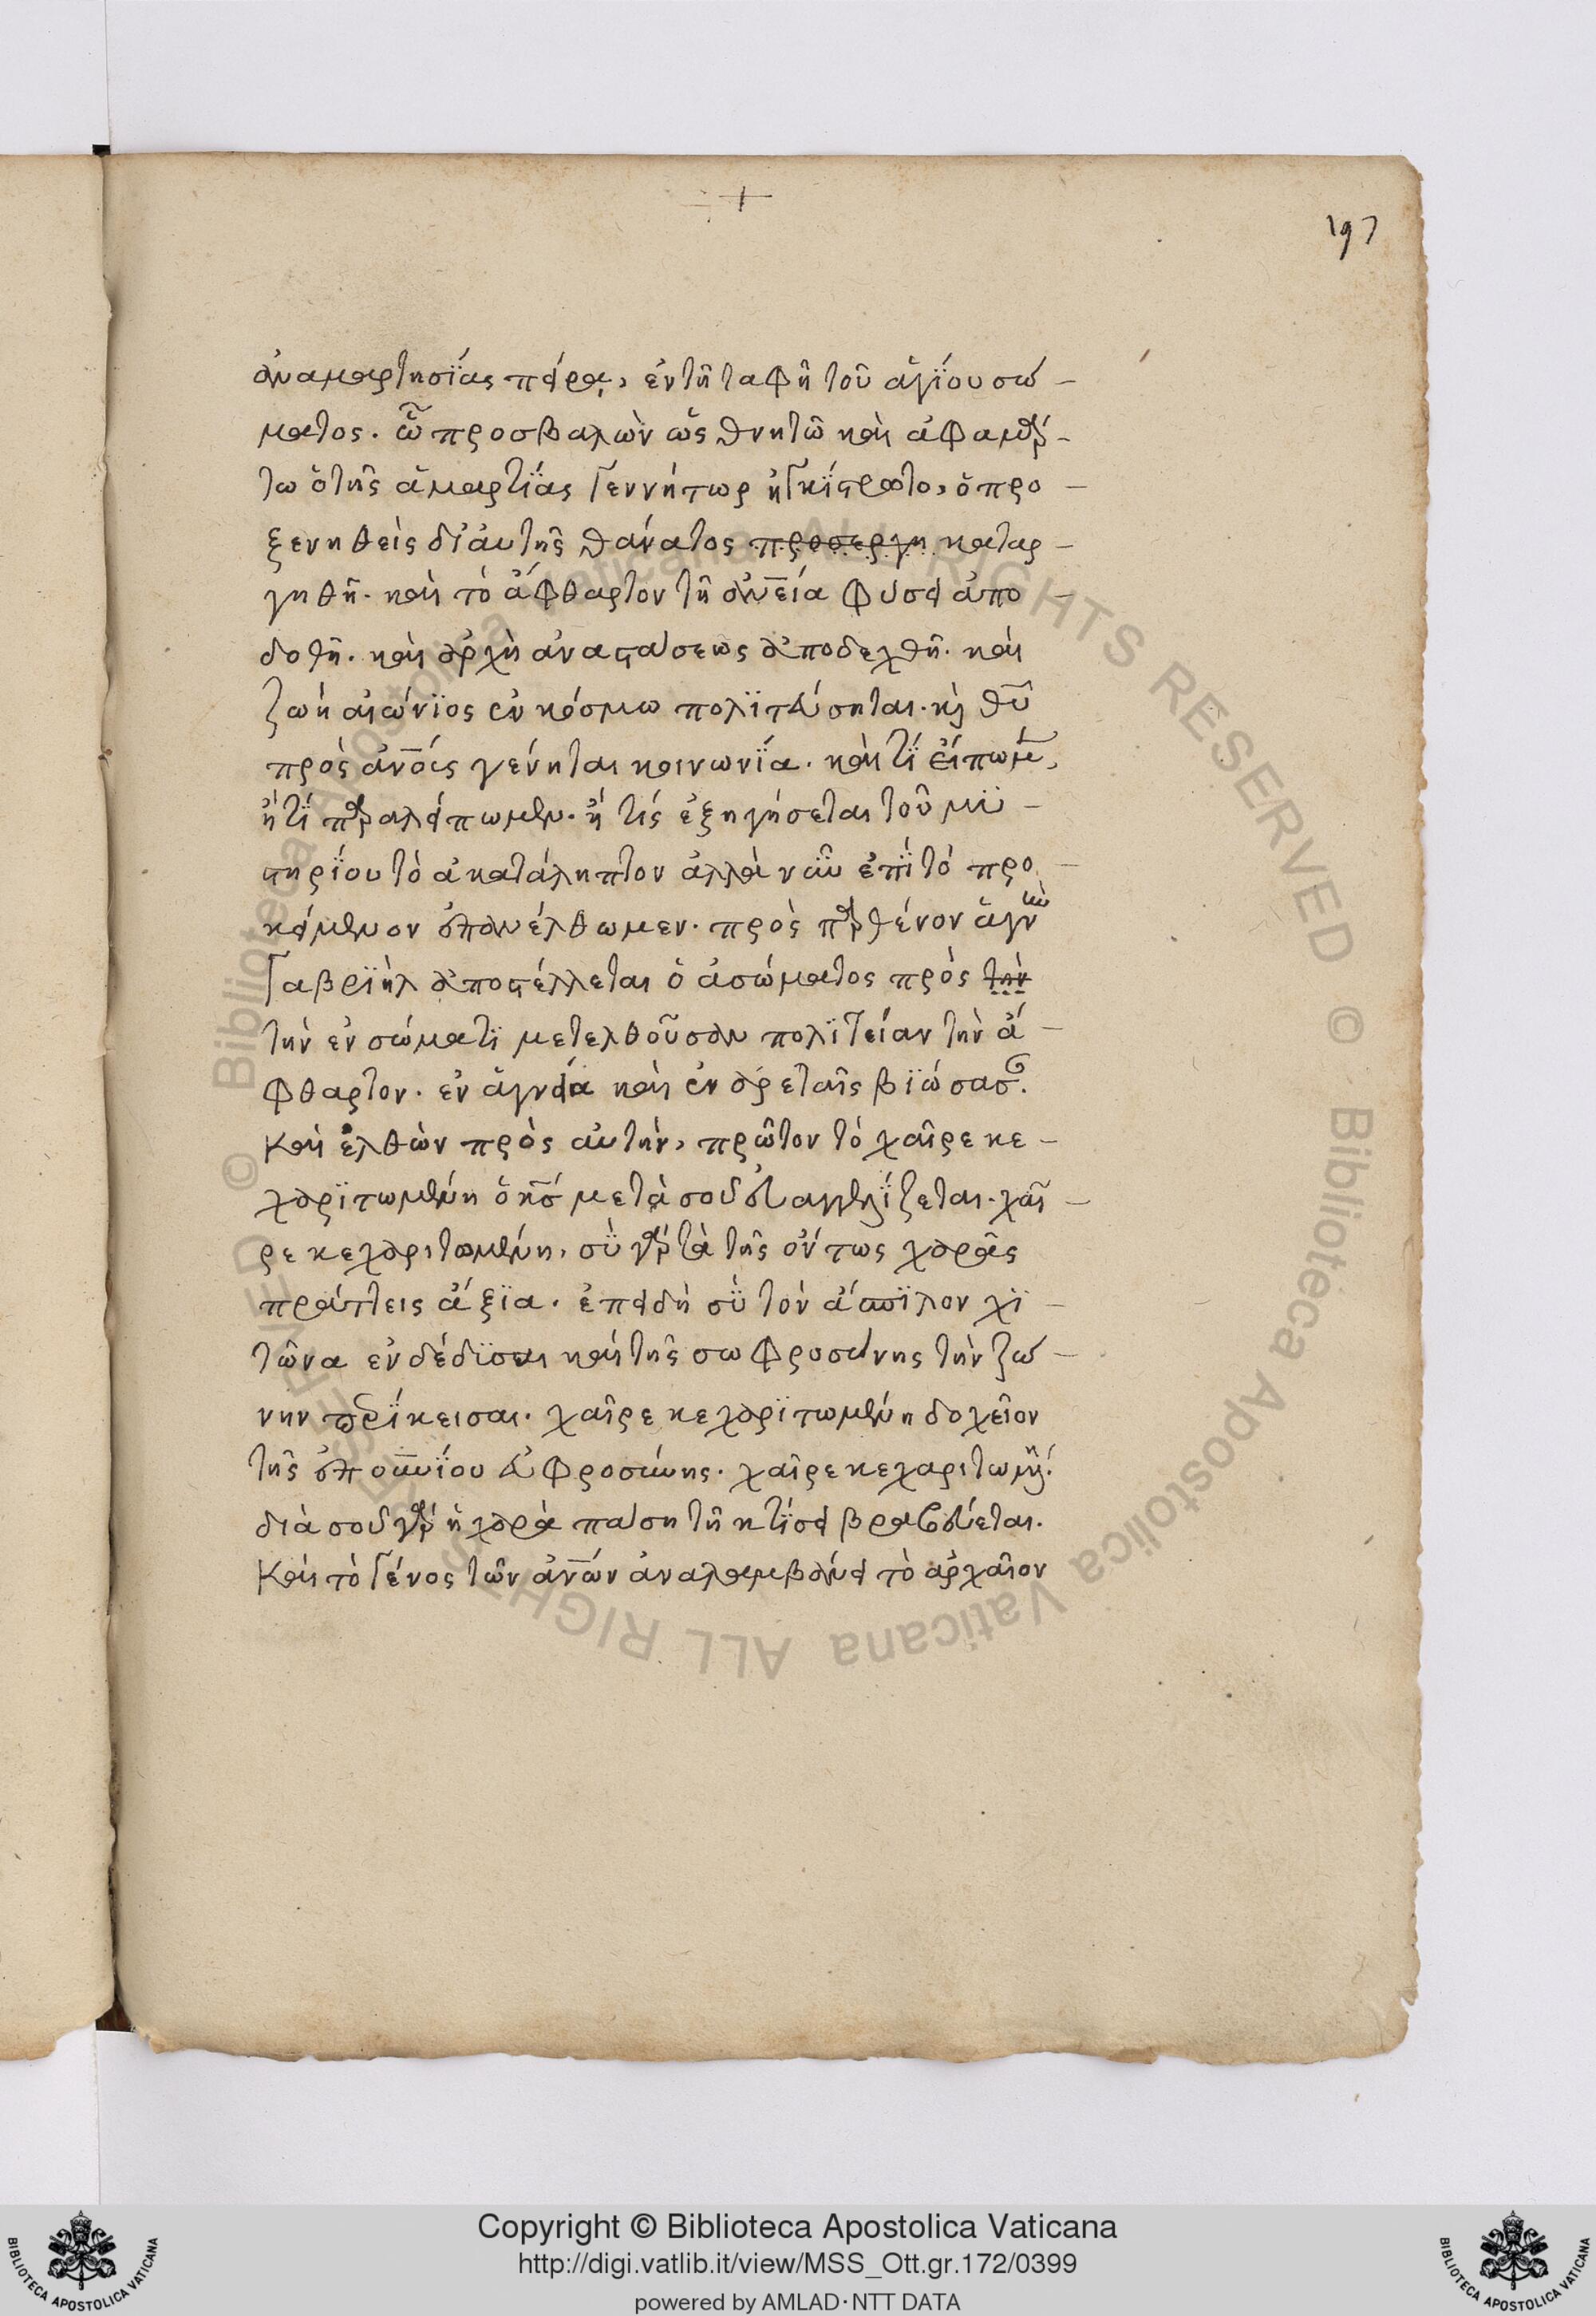 197
ἀναμαρτησίας πείρα, ἐν τῆ ταφῆ τοῦ ἁγΐου σώ –
ματος. ὧ προσβαλὼν ὡς θνητῶ καὶ ἁφαμάρ –
τω ὁ τῆς ἁμαρτΐας γεννήτωρ ἠγκΐστρωτο, ὁ προ –
ξενηθεὶς δι' αὐτῆς θάνατος προσεργη καταρ –
γηθῆ. καὶ τὸ ἄφθαρτον τῆ ἀν̅εία φύσει ἀπο –
δοθῆ. καὶ ἀρχὴ ἀναστάσεως ἀποδειχθῆ. καὶ
ζωὴ αἰώνϊος ἐν κόσμω πολϊτεύσηται. κὶ θῦ
πρὸς ἀν̅οις γένηται κοινωνΐα. καὶ τΐ εἴπωμεν,
ἢ τΐ παραλείπωμεν. ἢ τίς ἐξηγήσεται τοῦ μυ –
στηρΐου τὸ ἀκατάληπτον ἀλλὰ νῦν ἐπῒ τὸ προ –
κείμενον ἐπανέλθωμεν. πρὸς παρθένον ἁγνὴν
Γαβρϊὴλ ἀποστέλλεται ὁ ἀσώματος πρὸς τὴν
τὴν ἐν σώματϊ μετελθοῦσαν πολϊτείαν τὴν ἄ –
φθαρτον. ἐν ἁγνεία καὶ ἐν ἀρεταῖς βϊώσασαν.
Καὶ ἐλθὼν πρὸς αὐτὴν, πρῶτον τὸ χαῖρε κε –
χαρϊτωμένη ὁ κς̅ μετὰ σοῦ εὐαγγελΐζεται. χαῖ –
ρε κεχαριτωμένη, σὺ γὰρ τὰ τῆς ὄντως χαρᾶς
πράττεις ἄξϊα. ἐπειδὴ σὺ τὸν ἄσπϊλον χϊ –
τῶνα ἐνδέδϋσαι καὶ τῆς σωφροσύνης τὴν ζώ –
νην περΐκεισαι. χαῖρε κεχαρϊτωμένη δοχεῖον
τῆς ἐπουν̅ΐου εὐφροσύνης. χαῖρε κεχαριτωμένη.
διὰ σοῦ γὰρ ἡ χαρὰ πάση τῆ κτΐσει βραβεύεται.
Καὶ τὸ γένος τῶν ἀν̅ων ἀναλαμβάνει τὸ ἀρχαῖον
Copyright © Biblioteca Apostolica Vaticana
http://digi.vatlib.it/view/MSS_Ott.gr.172/0399
powered by AMLAD·NTT DATA